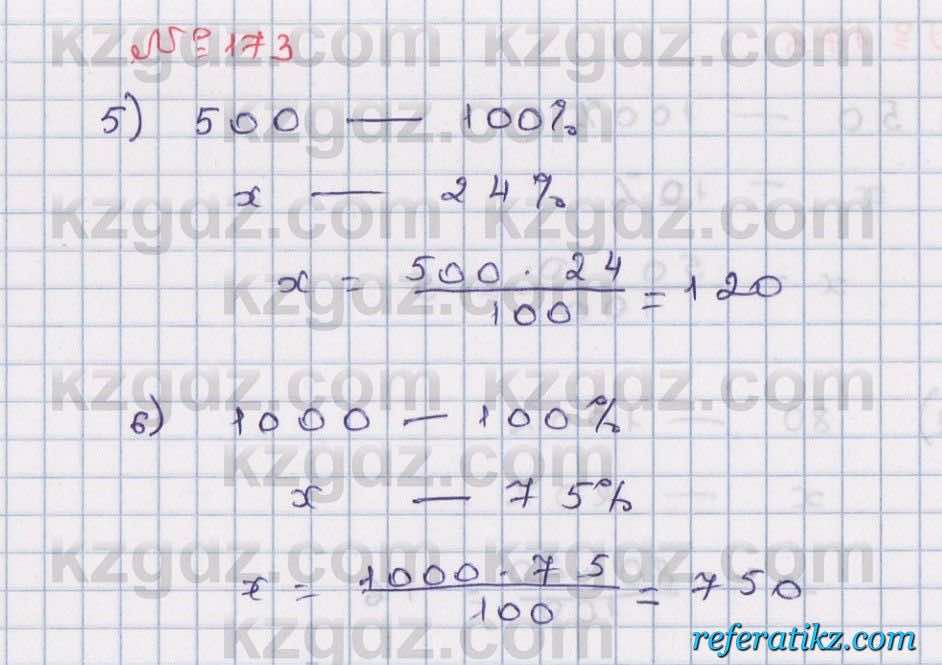 № 173
5) 500 — 100%
x — 24%
x = 500 · 24 / 100 = 120
6) 1000 — 100%
x — 75%
x = 1000 · 75 / 100 = 750
kzgdz.com
referatikz.com